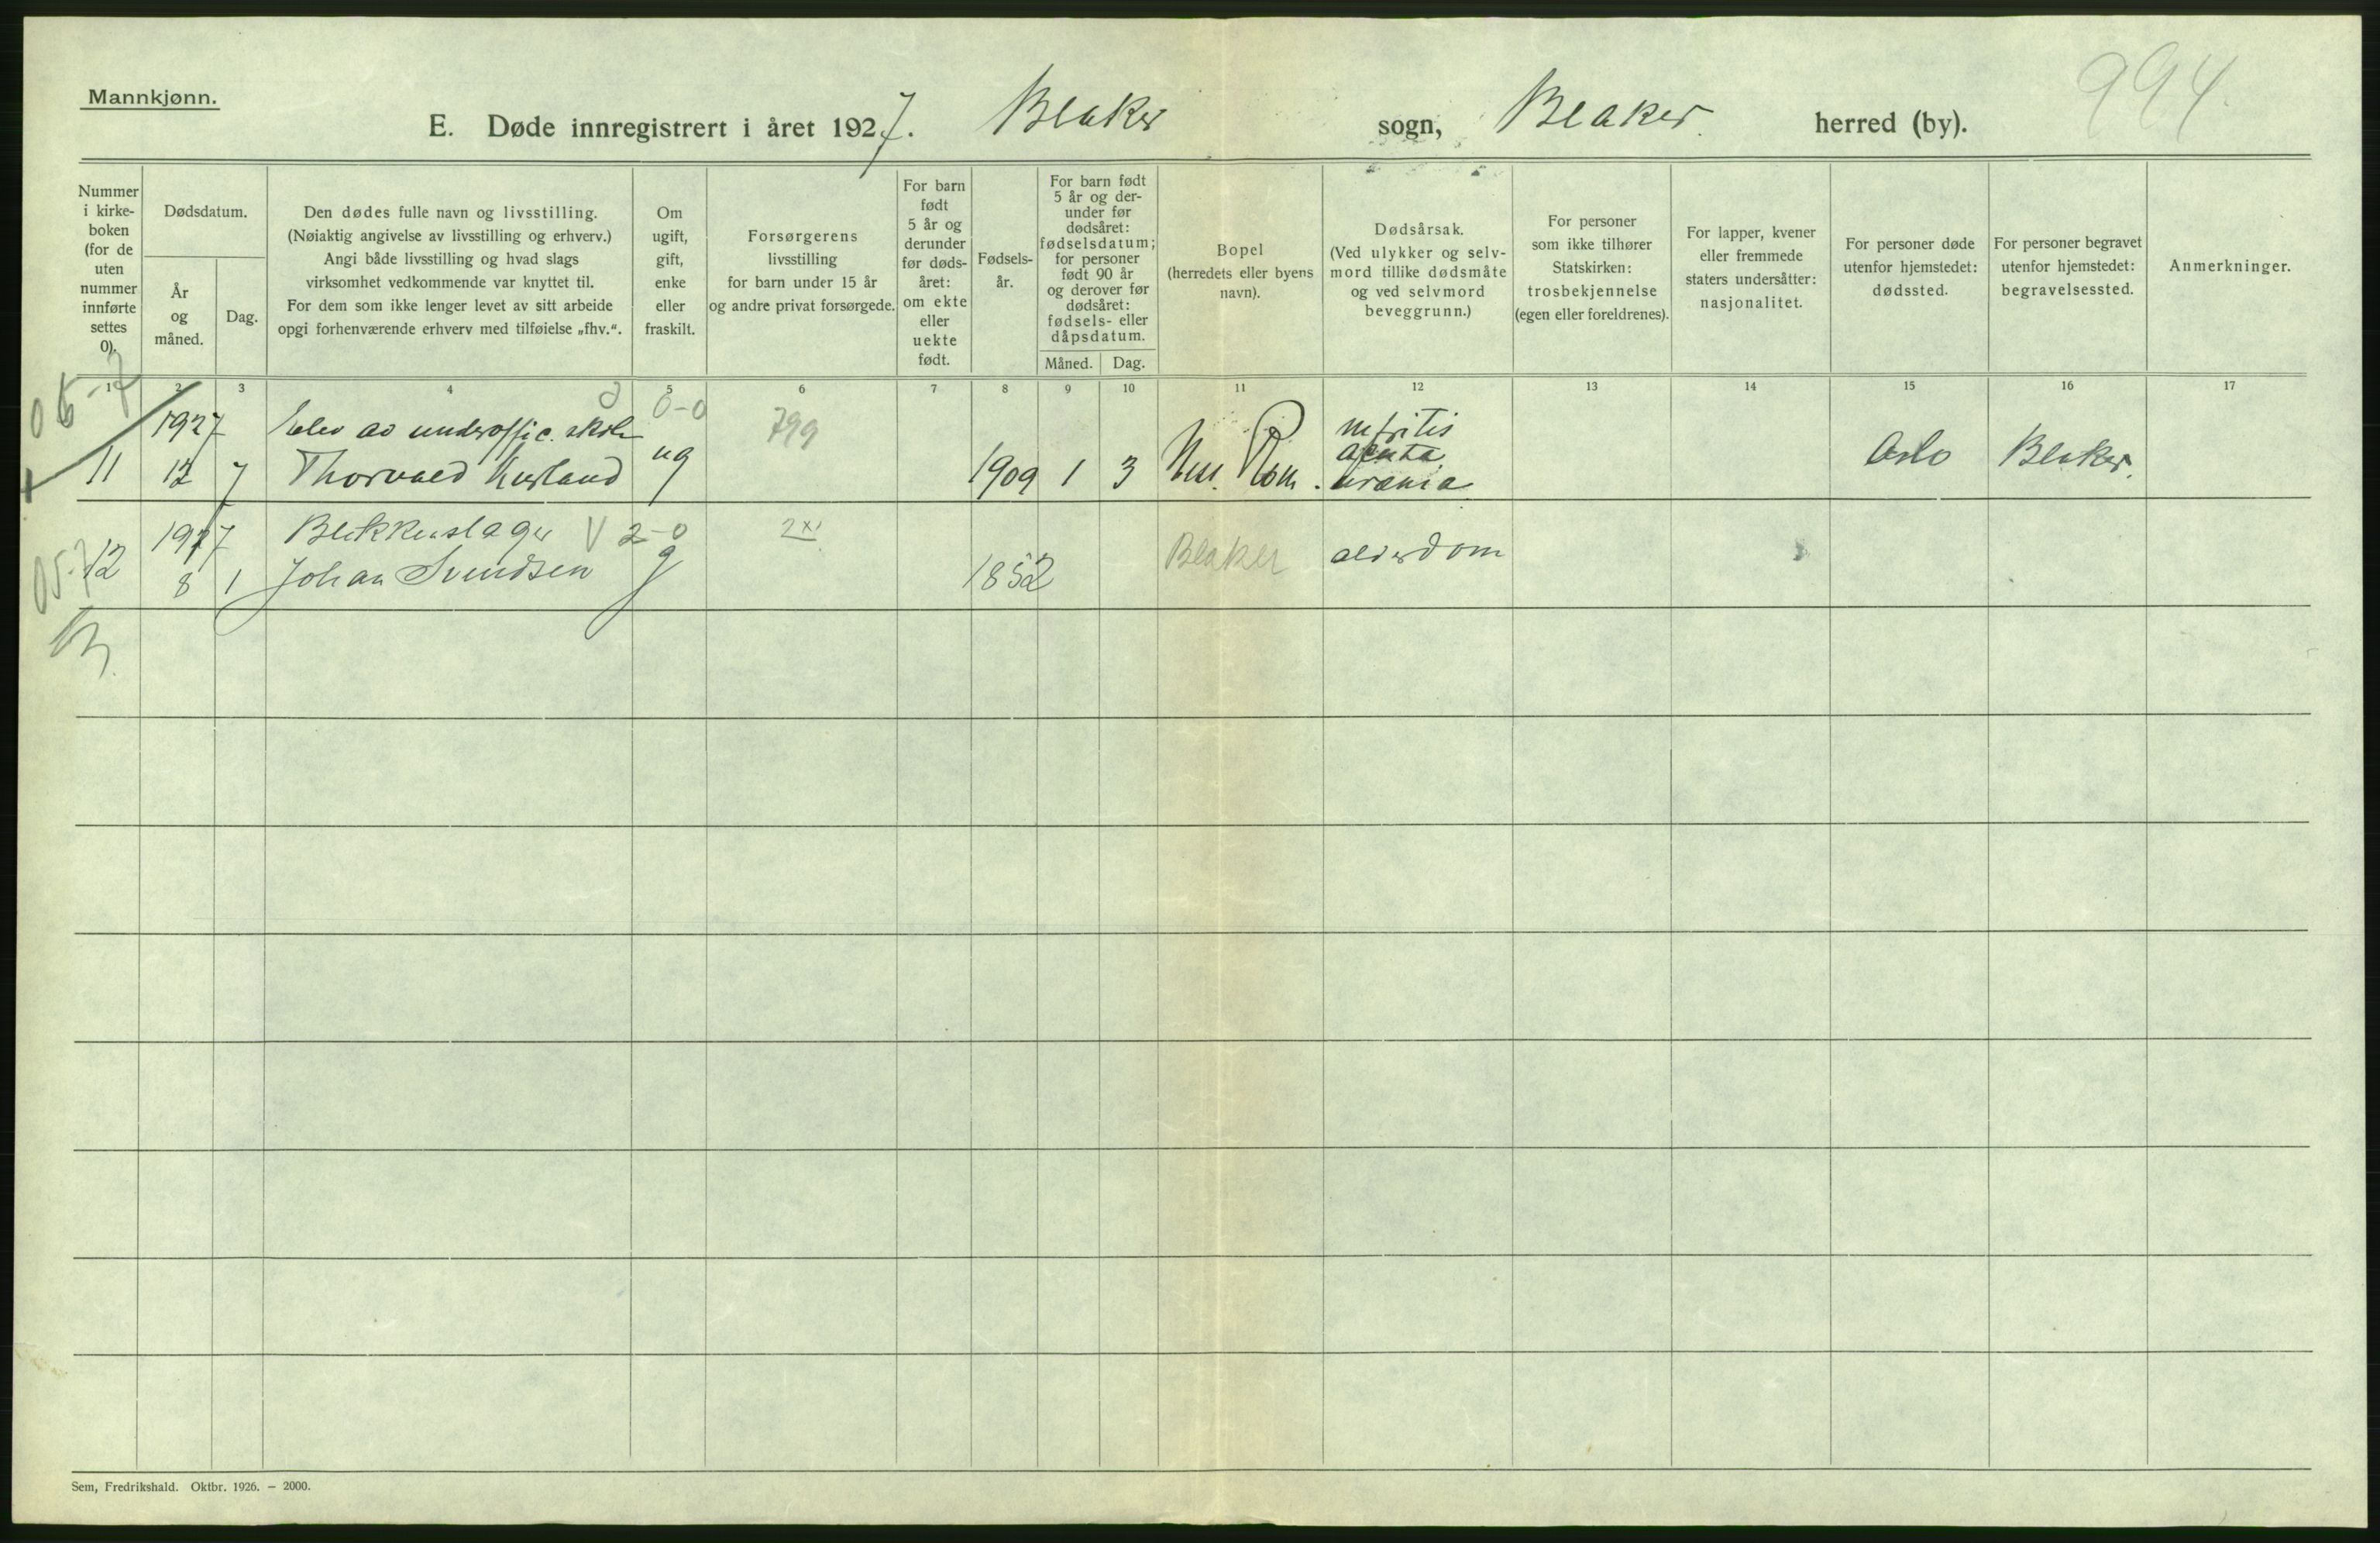 Mannkjønn.
E. Døde innregistrert i året 1927. Blaker sogn, Blaker herred (by).
994
Nummer
i kirke-
boken
(for de
uten
nummer
innførte
settes
0).
Dødsdatum.
År
og
måned.
Dag.
Den dødes fulle navn og livsstilling.
(Nøiaktig angivelse av livsstilling og erhverv.)
Angi både livsstilling og hvad slags
virksomhet vedkommende var knyttet til.
For dem som ikke lenger levet av sitt arbeide
opgi forhenværende erhverv med tilføielse „fhv.“.
Om
ugift,
gift,
enke
eller
fraskilt.
Forsørgerens
livsstilling
for barn under 15 år
og andre privat forsørgede.
For barn
født
5 år og
derunder
før døds-
året:
om ekte
eller
uekte
født.
Fødsels-
år.
For barn født
5 år og der-
under før
dødsåret:
fødselsdatum;
for personer
født 90 år
og derover før
dødsåret:
fødsels- eller
dåpsdatum.
Måned.
Dag.
Bopel
(herredets eller byens
navn).
Dødsårsak.
(Ved ulykker og selv-
mord tillike dødsmåte
og ved selvmord
beveggrunn.)
For personer
som ikke tilhører
Statskirken:
trosbekjennelse
(egen eller foreldrenes).
For lapper, kvener
eller fremmede
staters undersåtter:
nasjonalitet.
For personer døde
utenfor hjemstedet:
dødssted.
For personer begravet
utenfor hjemstedet:
begravelsessted.
Anmerkninger.
1 2 3 4 5 6 7 8 9 10 11 12 13 14 15 16 17
1927 Elev av underoffic. skole 0-0 799 nefritis
acuta
11 12 7 Thorvald ug 1909 1 3 uræmia Oslo Blaker.
1927 Blikkenslager V 2-0 2x1
12 8 1 Johan Svendsen g 1852 Blaker alderdom
Sem, Fredrikshald. Oktbr. 1926. — 2000.